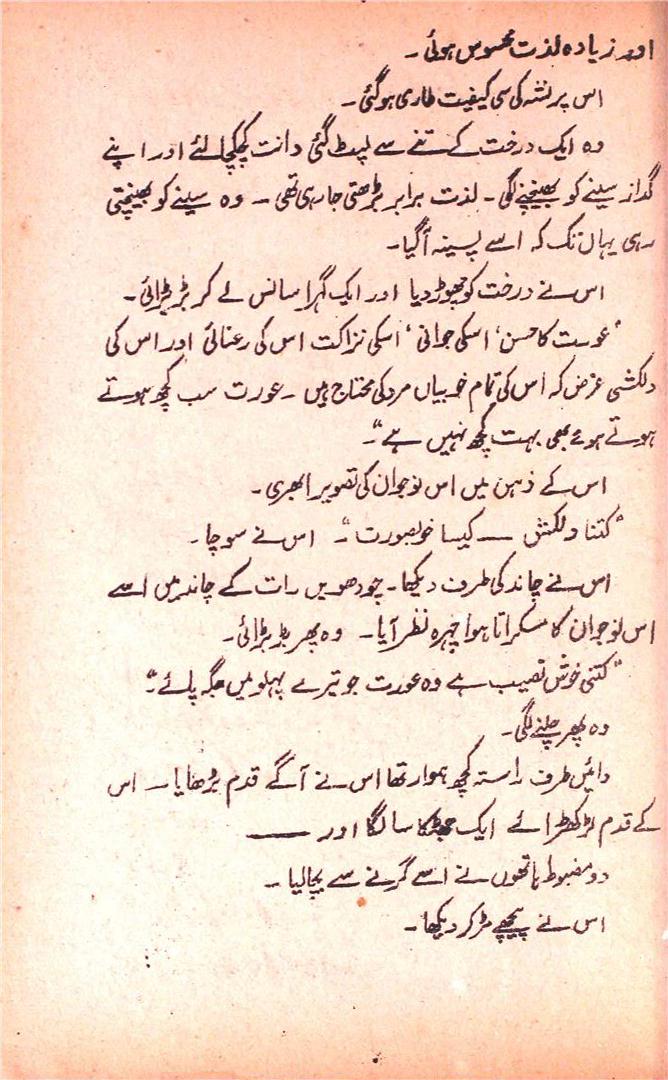 اور زیادہ لذت محسوس ہوئی۔
اس پر نشہ کی سی کیفیت طاری ہوگئی۔
وہ ایک درخت کے تنے سے لپٹ گئی دانت کچکچا لئے اور اپنے
گداز سینے کو بھینچنے لگی۔ لذت برابر بڑھتی جا رہی تھی۔ وہ سینے کو بھینچتی
رہی یہاں تک کہ اسے پسینہ آگیا۔
اس نے درخت کو چھوڑ دیا اور ایک گہرا سانس لے کر بڑبڑائی۔
"عورت کا حسن، اسکی جوانی، اسکی نزاکت اس کی رعنائی اور اس کی
دلکشی غرض کہ اس کی تمام خوبیاں مرد کی محتاج ہیں۔ عورت سب کچھ ہوتے
ہوتے ہوئے بھی بہت کچھ نہیں ہے"۔
اس کے ذہن میں اس نوجوان کی تصویر ابھری۔
"کتنا دلکش — کیسا خوبصورت"۔ اس نے سوچا۔
اس نے چاند کی طرف دیکھا۔ چودھویں رات کے چاند میں اسے
اس نوجوان کا مسکراتا ہوا چہرہ نظر آیا۔ وہ پھر بڑبڑائی۔
"کتنی خوش نصیب ہے وہ عورت جو تیرے پہلو میں جگہ پائے"۔
وہ پھر چلنے لگی۔
دائیں طرف راستہ کچھ ہموار تھا اس نے آگے قدم بڑھایا۔ اس
کے قدم لڑکھڑائے ایک جھٹکا سا لگا اور ——
دو مضبوط ہاتھوں نے اسے گرنے سے بچا لیا۔
اس نے پیچھے مڑ کر دیکھا۔